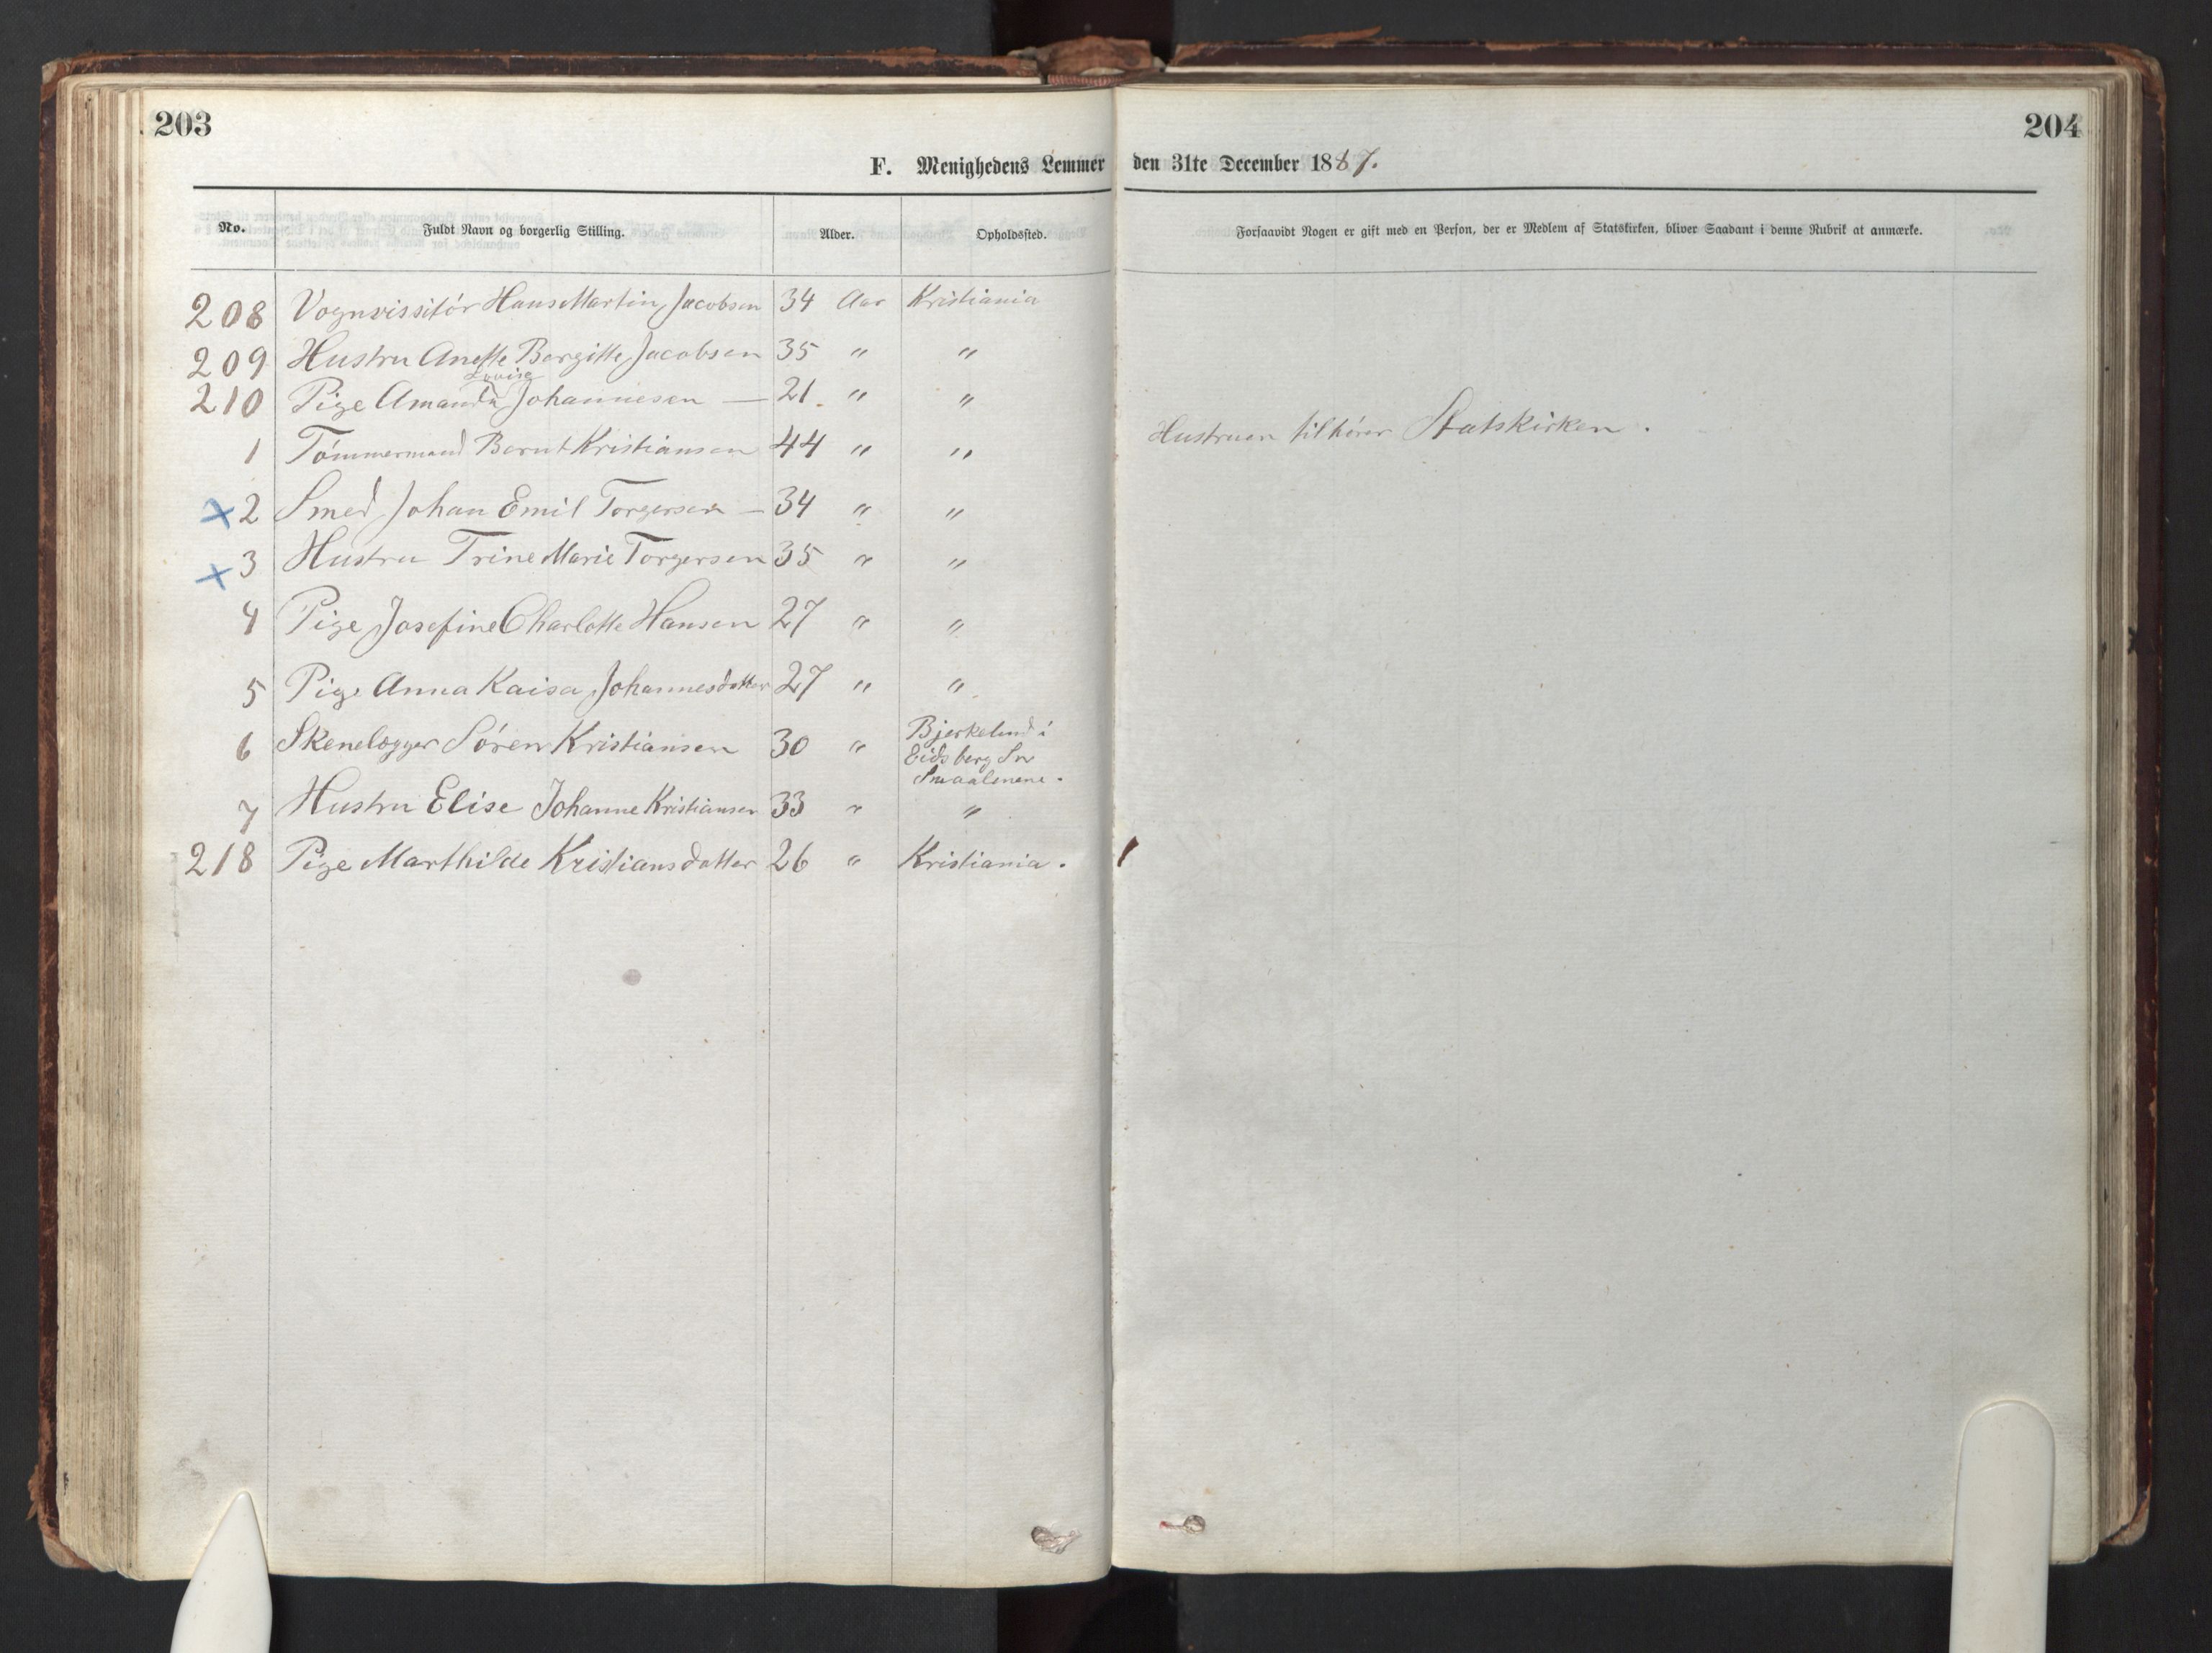 203
204
F. Menighedens Lemmer den 31te December 1887.
No. Fuldt Navn og borgerlig Stilling. Alder. Opholdssted. Forsaavidt Nogen er gift med en Person, der er Medlem af Statskirken, bliver Saadant i denne Rubrik at anmærke.
208 Vognvissitör Hans Martin Jacobsen 34 Aar Kristiania
209 Hustru Anette Bergitte Jacobsen 35 " "
Lovise
210 Pige Amanda Johannesen — 21. " "
1 Tömmermand Bernt Kristiansen 44 " " Hustruen tilhörer Statskirken.
x 2 Smed Johan Emil Torgersen — 34 " "
x 3 Hustru Trine Marie Torgersen 35 " "
4 Pige Josefine Charlotte Hansen 27 " "
5 Pige Anna Kaisa Johannesdatter 27 " "
6 Skenelægger Sören Kristiansen 30 " Bjerkelund i
Eidsberg Sn
Smaalenene.
7 Hustru Elise Johanne Kristiansen 33 " "
218 Pige Marthilde Kristiansdatter 26 " Kristiania.